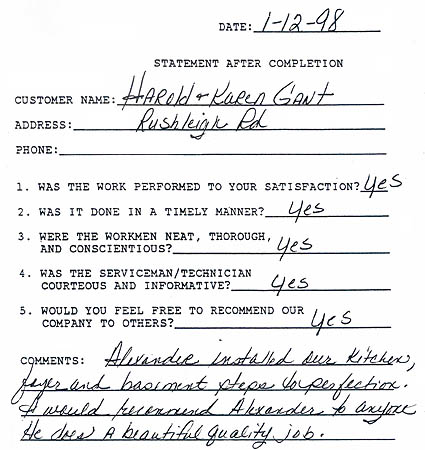 DATE: 1-12-98
STATEMENT AFTER COMPLETION
CUSTOMER NAME: Harold + Karen Gant
ADDRESS: Rushleigh Rd
PHONE:
1. WAS THE WORK PERFORMED TO YOUR SATISFACTION? yes
2. WAS IT DONE IN A TIMELY MANNER? yes
3. WERE THE WORKMEN NEAT, THOROUGH,
AND CONSCIENTIOUS? yes
4. WAS THE SERVICEMAN/TECHNICIAN
COURTEOUS AND INFORMATIVE? yes
5. WOULD YOU FEEL FREE TO RECOMMEND OUR
COMPANY TO OTHERS? yes
COMMENTS: Alexander installed our kitchen,
foyer and basment steps to perfection.
I would recomend Alexander to anyone
He does a beautiful quality job.